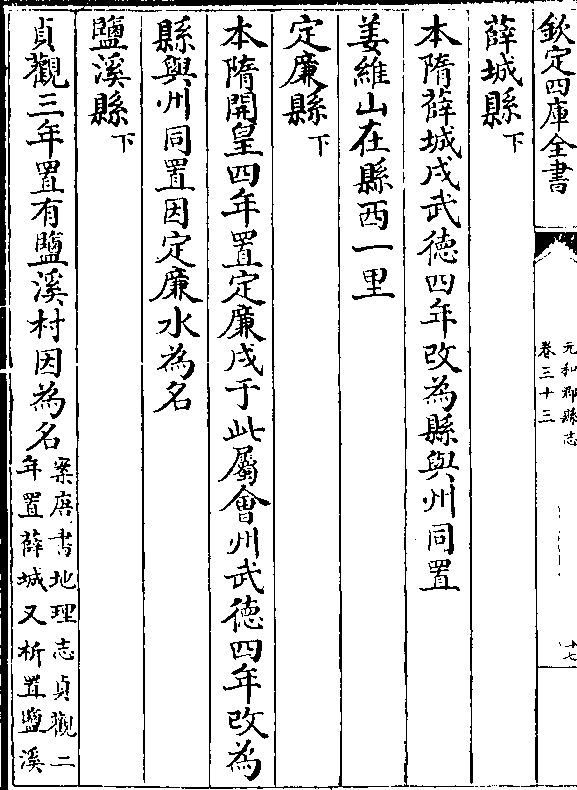 欽定四庫全書
元和郡縣志
卷三十三
十七
薛城縣下
本隋薛城戍武德四年改為縣與州同置
姜維山在縣西一里
定廉縣下
本隋開皇四年置定廉戍于此屬會州武德四年改為
縣與州同置因定廉水為名
鹽溪縣下
貞觀三年置有鹽溪村因為名案唐書地理志貞觀二
年置薛城又析置鹽溪